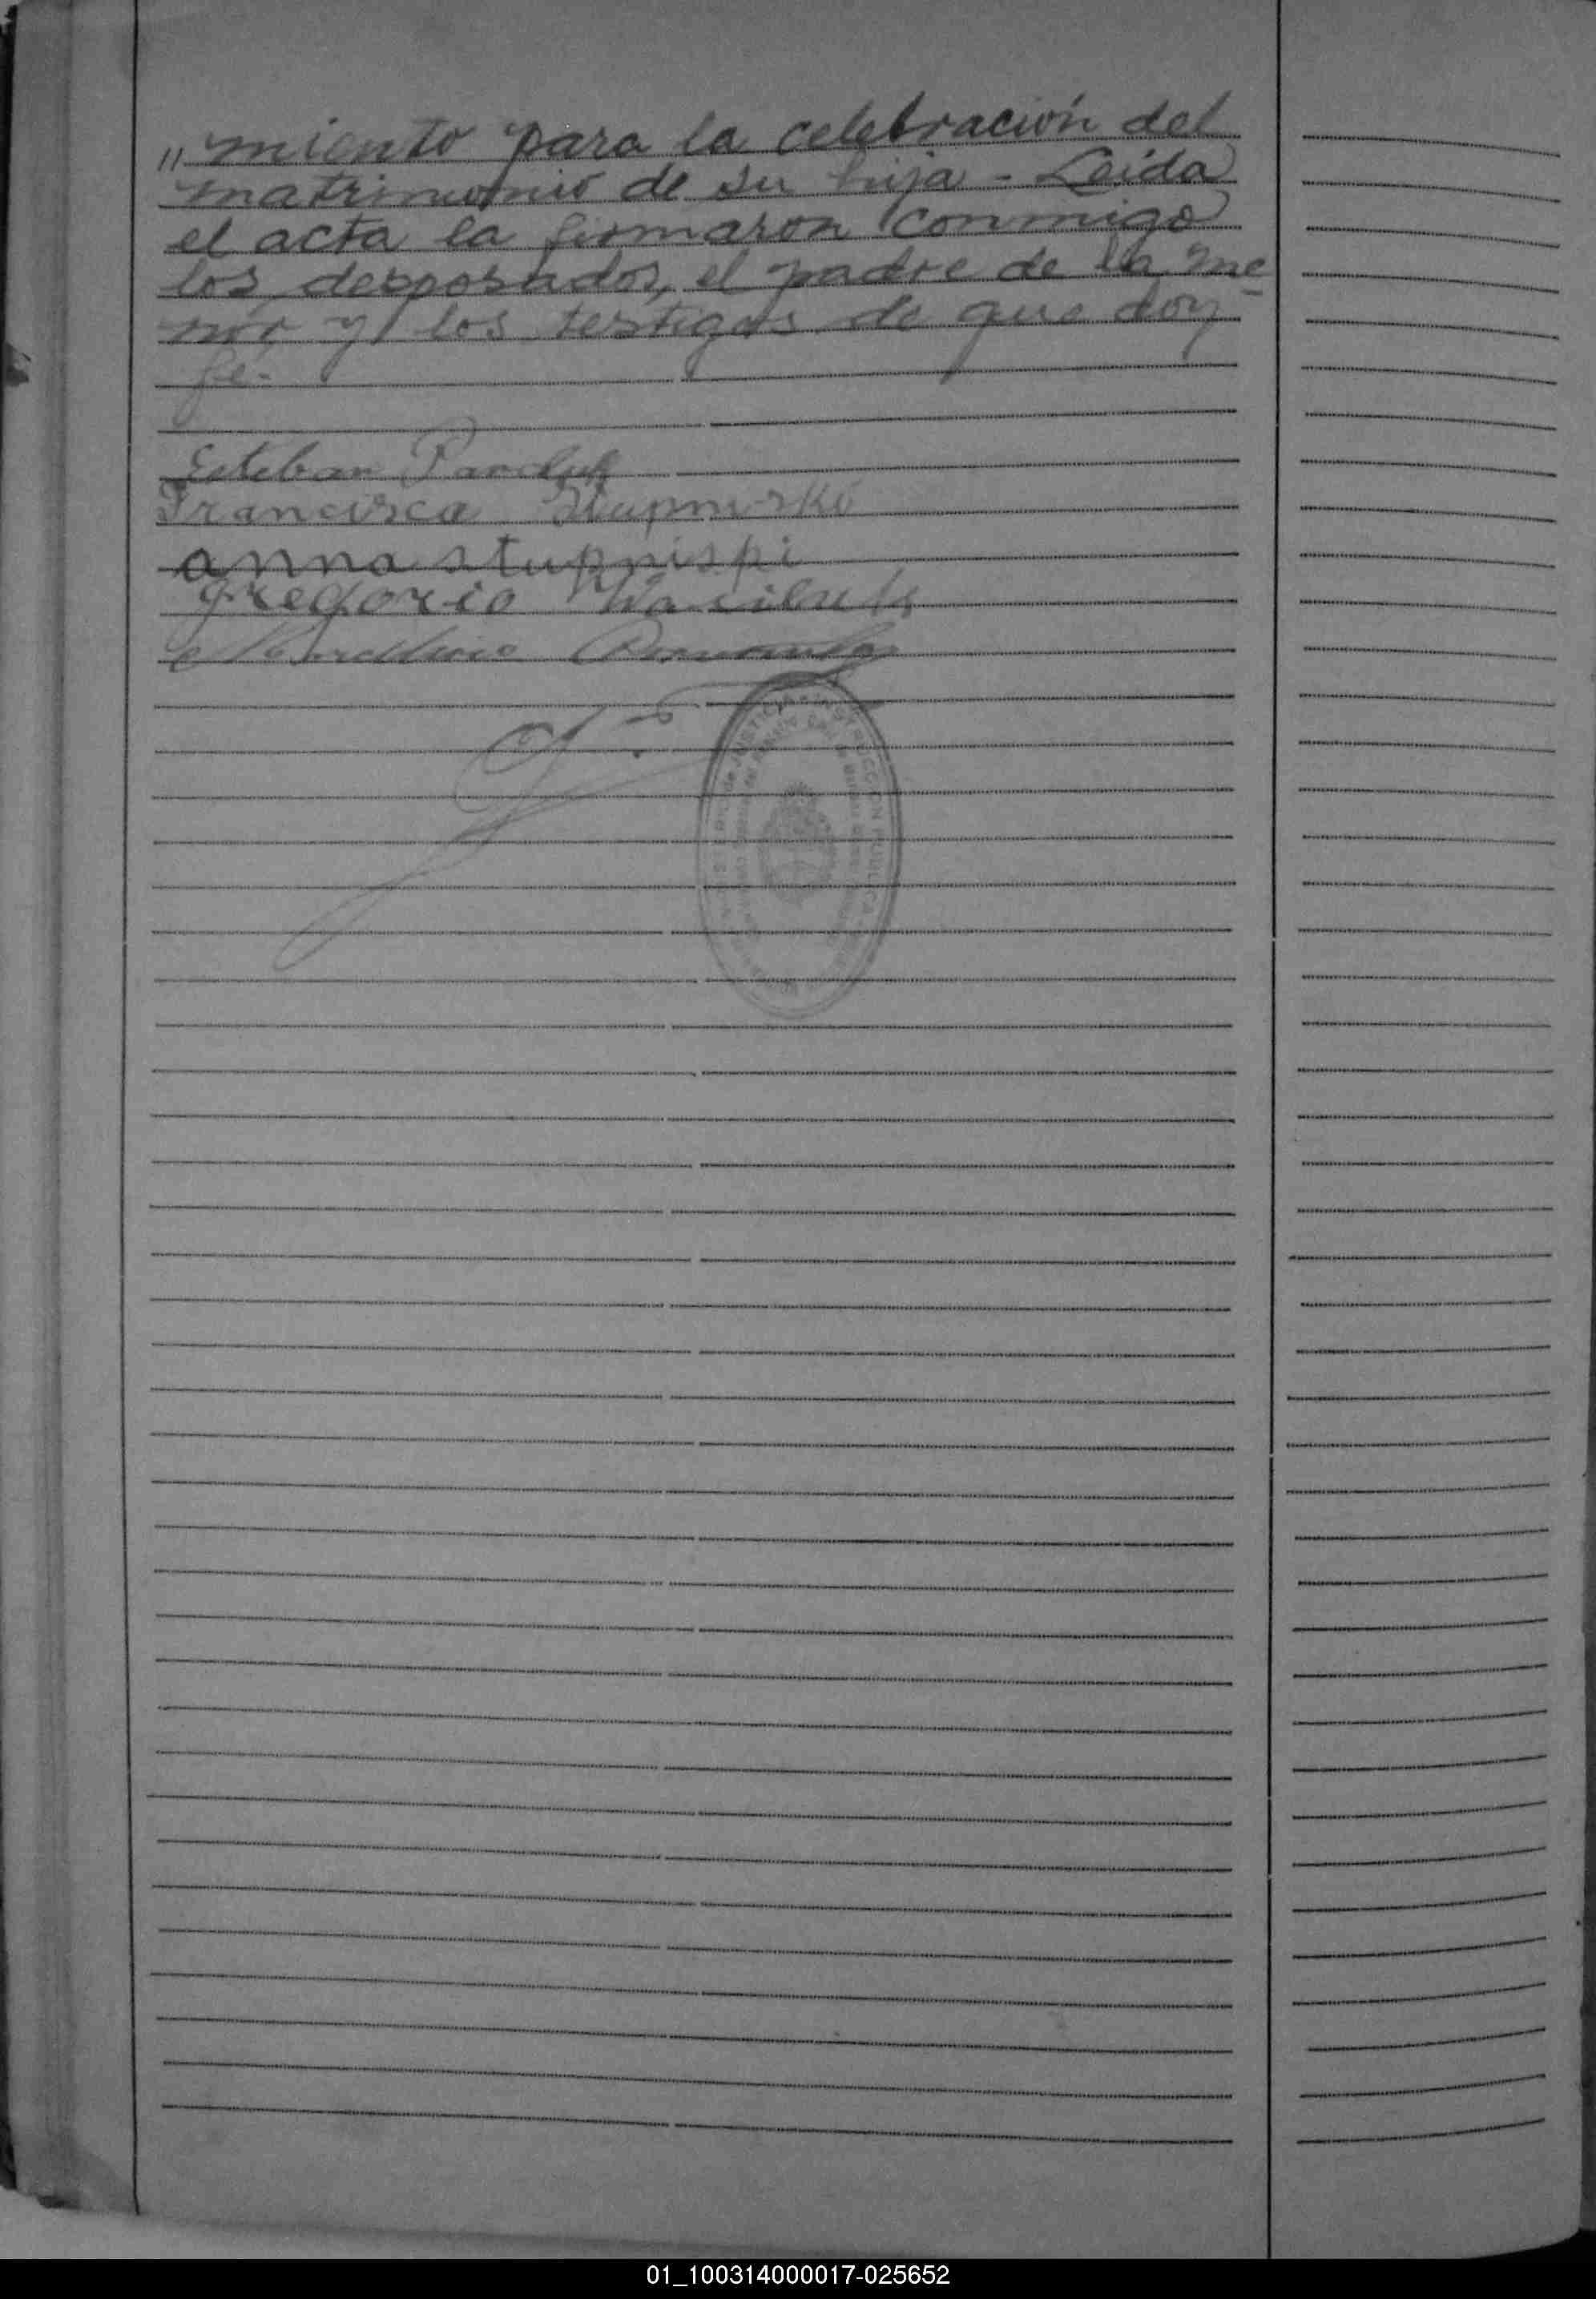 " miento para la celebración del
matrimonio de su hija - Leida
el acta la firmaron conmigo
los desposados, el padre de la me-
nor y los testigos de que doy
fé.
Esteban
Francisca Stupniski
anna stupnispi
gregorio Wasiluk
JUSTICIA INSTRUCCION PUBLICA
01_100314000017-025652